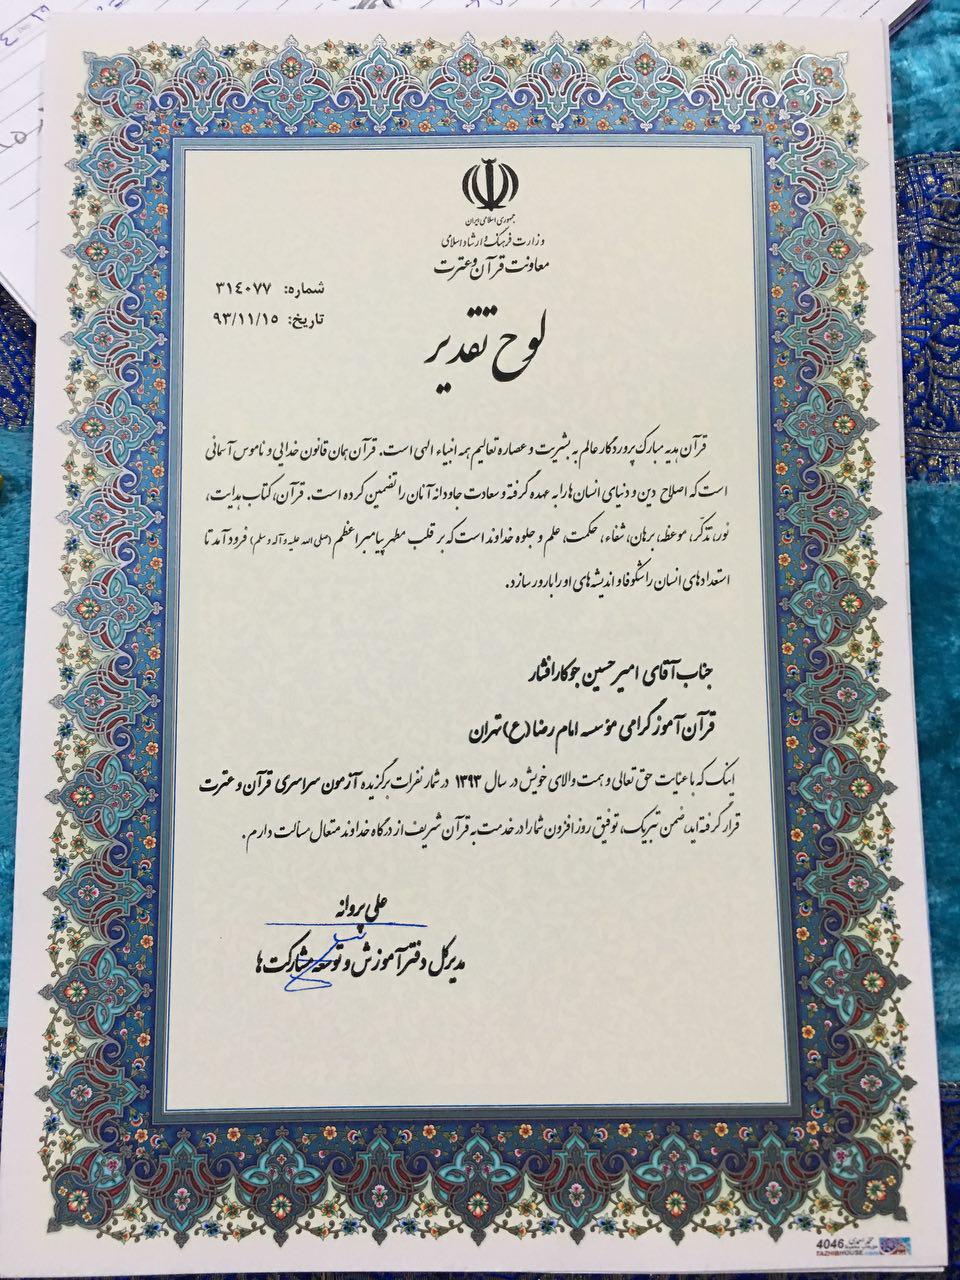 جمهوری اسلامی ایران
وزارت فرهنگ و ارشاد اسلامی
معاونت قرآن و عترت
شماره: ٣١٤٠٧٧
تاریخ: ٩٣/١١/١٥
لوح تقدیر
قرآن هدیه مبارک پروردگار عالم به بشریت و عصاره تعالیم همه انبیاء الهی است. قرآن همان قانون خدایی و ناموس آسمانی
است که اصلاح دین و دنیای انسان ها را به عهده گرفته و سعادت جاودانه آنان را تضمین کرده است. قرآن، کتاب هدایت،
نور، تذکّر، موعظه، برهان، شفاء، حکمت، علم و جلوه خداوند است که بر قلب مطهر پیامبر اعظم (صلی الله علیه و آله و سلم) فرود آمد تا
استعدادهای انسان را شکوفا و اندیشه های او را بارور سازد.
جناب آقای امیرحسین جوکارافشار
قرآن آموز گرامی مؤسسه امام رضا (ع) تهران
اینک که با عنایت حق تعالی و همت والای خویش در سال ۱۳۹۳ در شمار نفرات برگزیده آزمون سراسری قرآن و عترت
قرار گرفته اید، ضمن تبریک، توفیق روزافزون شما را در خدمت به قرآن شریف از درگاه خداوند متعال مسألت دارم.
علی پروانه
مدیرکل دفتر آموزش و توسعه مشارکت ها
4046
TAZHIBHOUSE.com